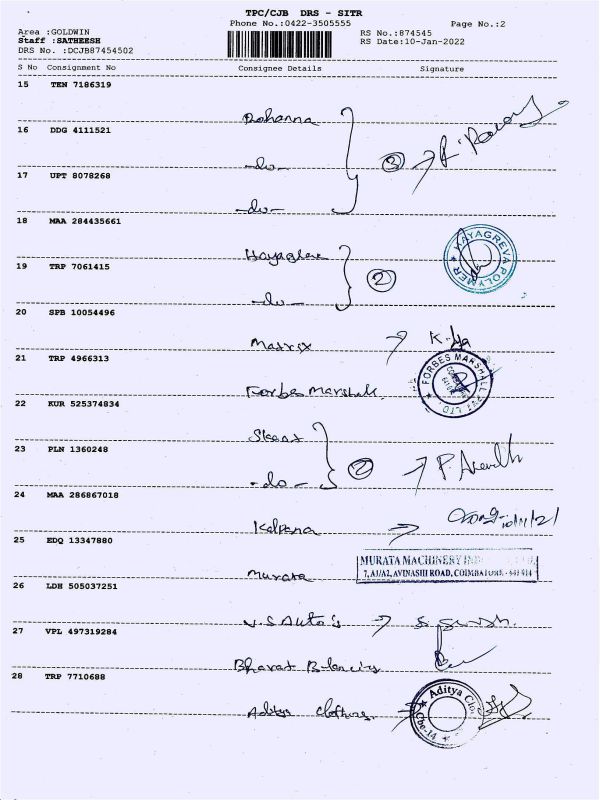 TPC/CJB DRS - SITR
Phone No.:0422-3505555 Page No.:2
Area :GOLDWIN RS No.:874545
Staff :SATHEESH RS Date:10-Jan-2022
DRS No. :DCJB87454502
S No Consignment No Consignee Details Signature
15 TEN 7186319
Rohanna
16 DDG 4111521
-do- 3
17 UPT 8078268
-do-
18 MAA 284435661
HAYAGREVA POLYMER
19 TRP 7061415
2
-do-
20 SPB 10054496
Matrix
21 TRP 4966313
FORBES MARSHALL PVT LTD.
Forbes Marshall.
22 KUR 525374834
23 PLN 1360248
2
-do-
24 MAA 286867018
Kalpana
25 EDQ 13347880
MURATA MACHINERY
7, A1/A2, AVINASHI ROAD, COIMBATORE - 641 014
Murata
26 LDH 505037251
V.S Auto's
27 VPL 497319284
Bharat
28 TRP 7710688
Aditya Clo
Cbe-14
Aditya